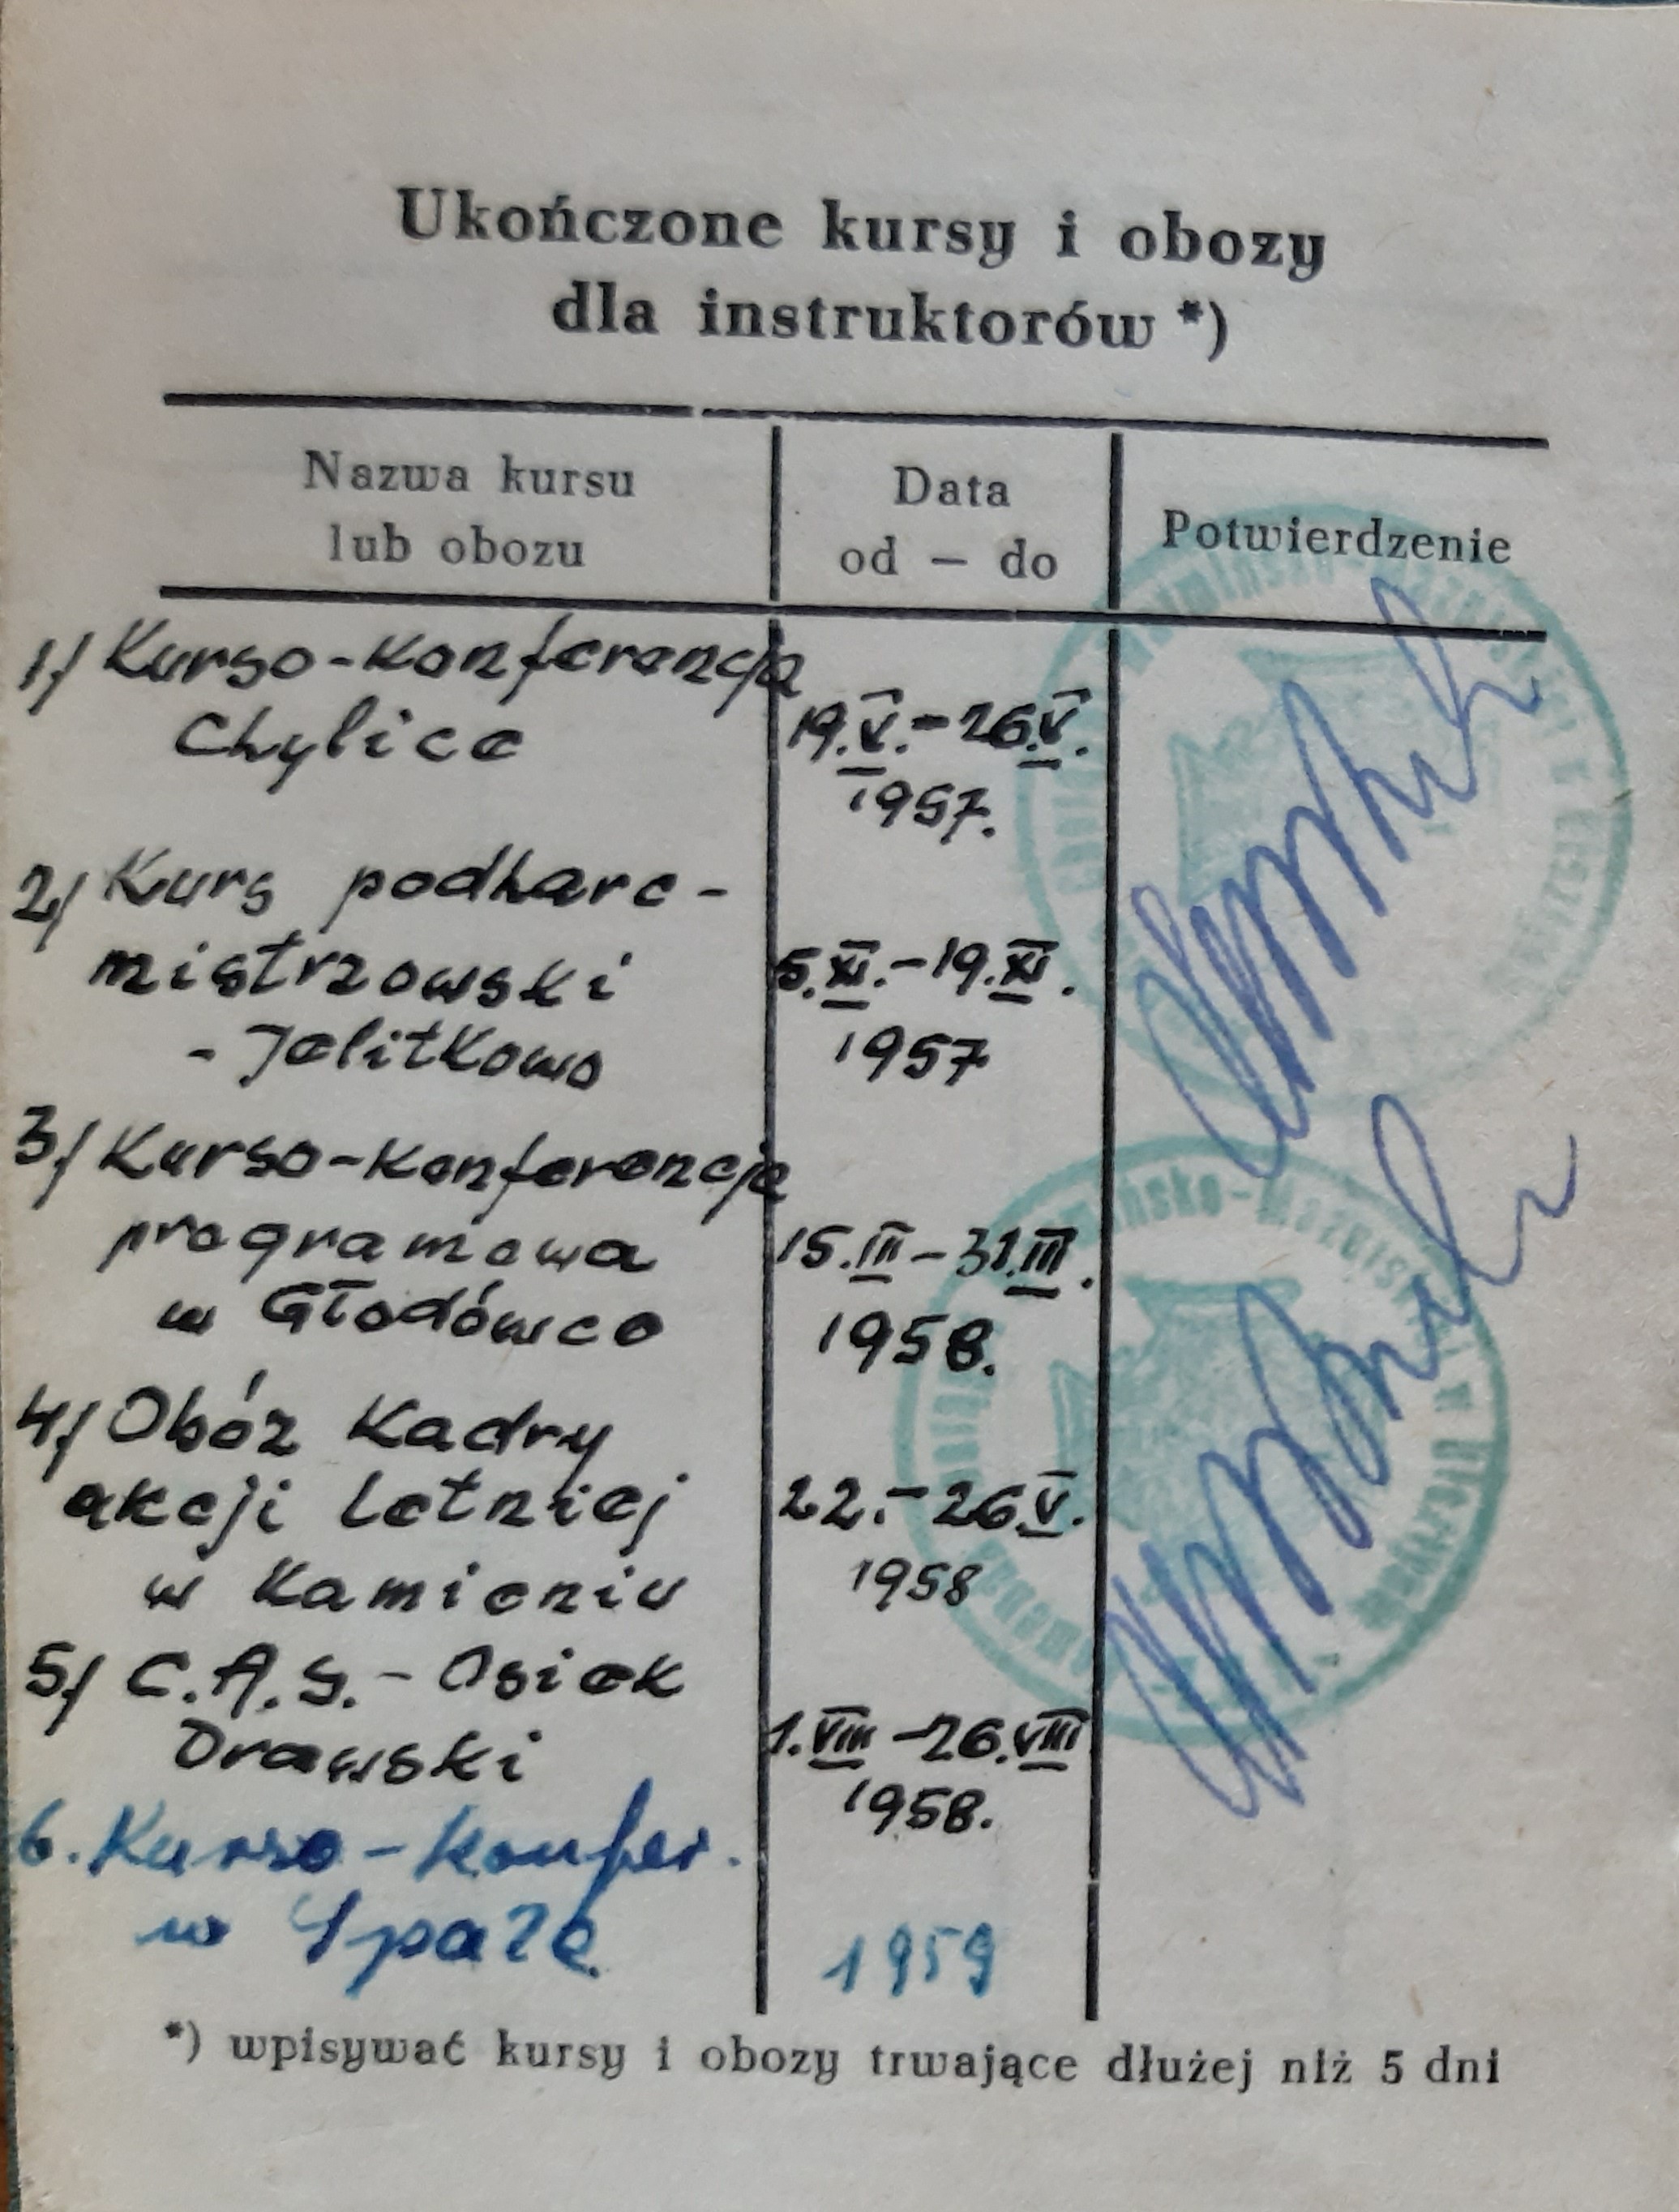 Ukończone kursy i obozy
dla instruktorów *)
Nazwa kursu
lub obozu
Data
od — do
Potwierdzenie
1/ Kurso-Konferencja
Chylice
19.V.-26.V.
1957.
2/ Kurs podharc-
mistrzowski
- Jelitkowo
5.XI.-19.XI.
1957
3/ Kurso-Konferencja
programowa
w Głodówce
15.III-31.III.
1958.
4/ Obóz Kadry
akcji letniej
w Kamieniu
22.-26.V.
1958
5/ C.A.S.- Osiek
Drawski
1.VIII-26.VIII
1958.
6. Kurso-konfer.
w Spale
1959
*) wpisywać kursy i obozy trwające dłużej niż 5 dni